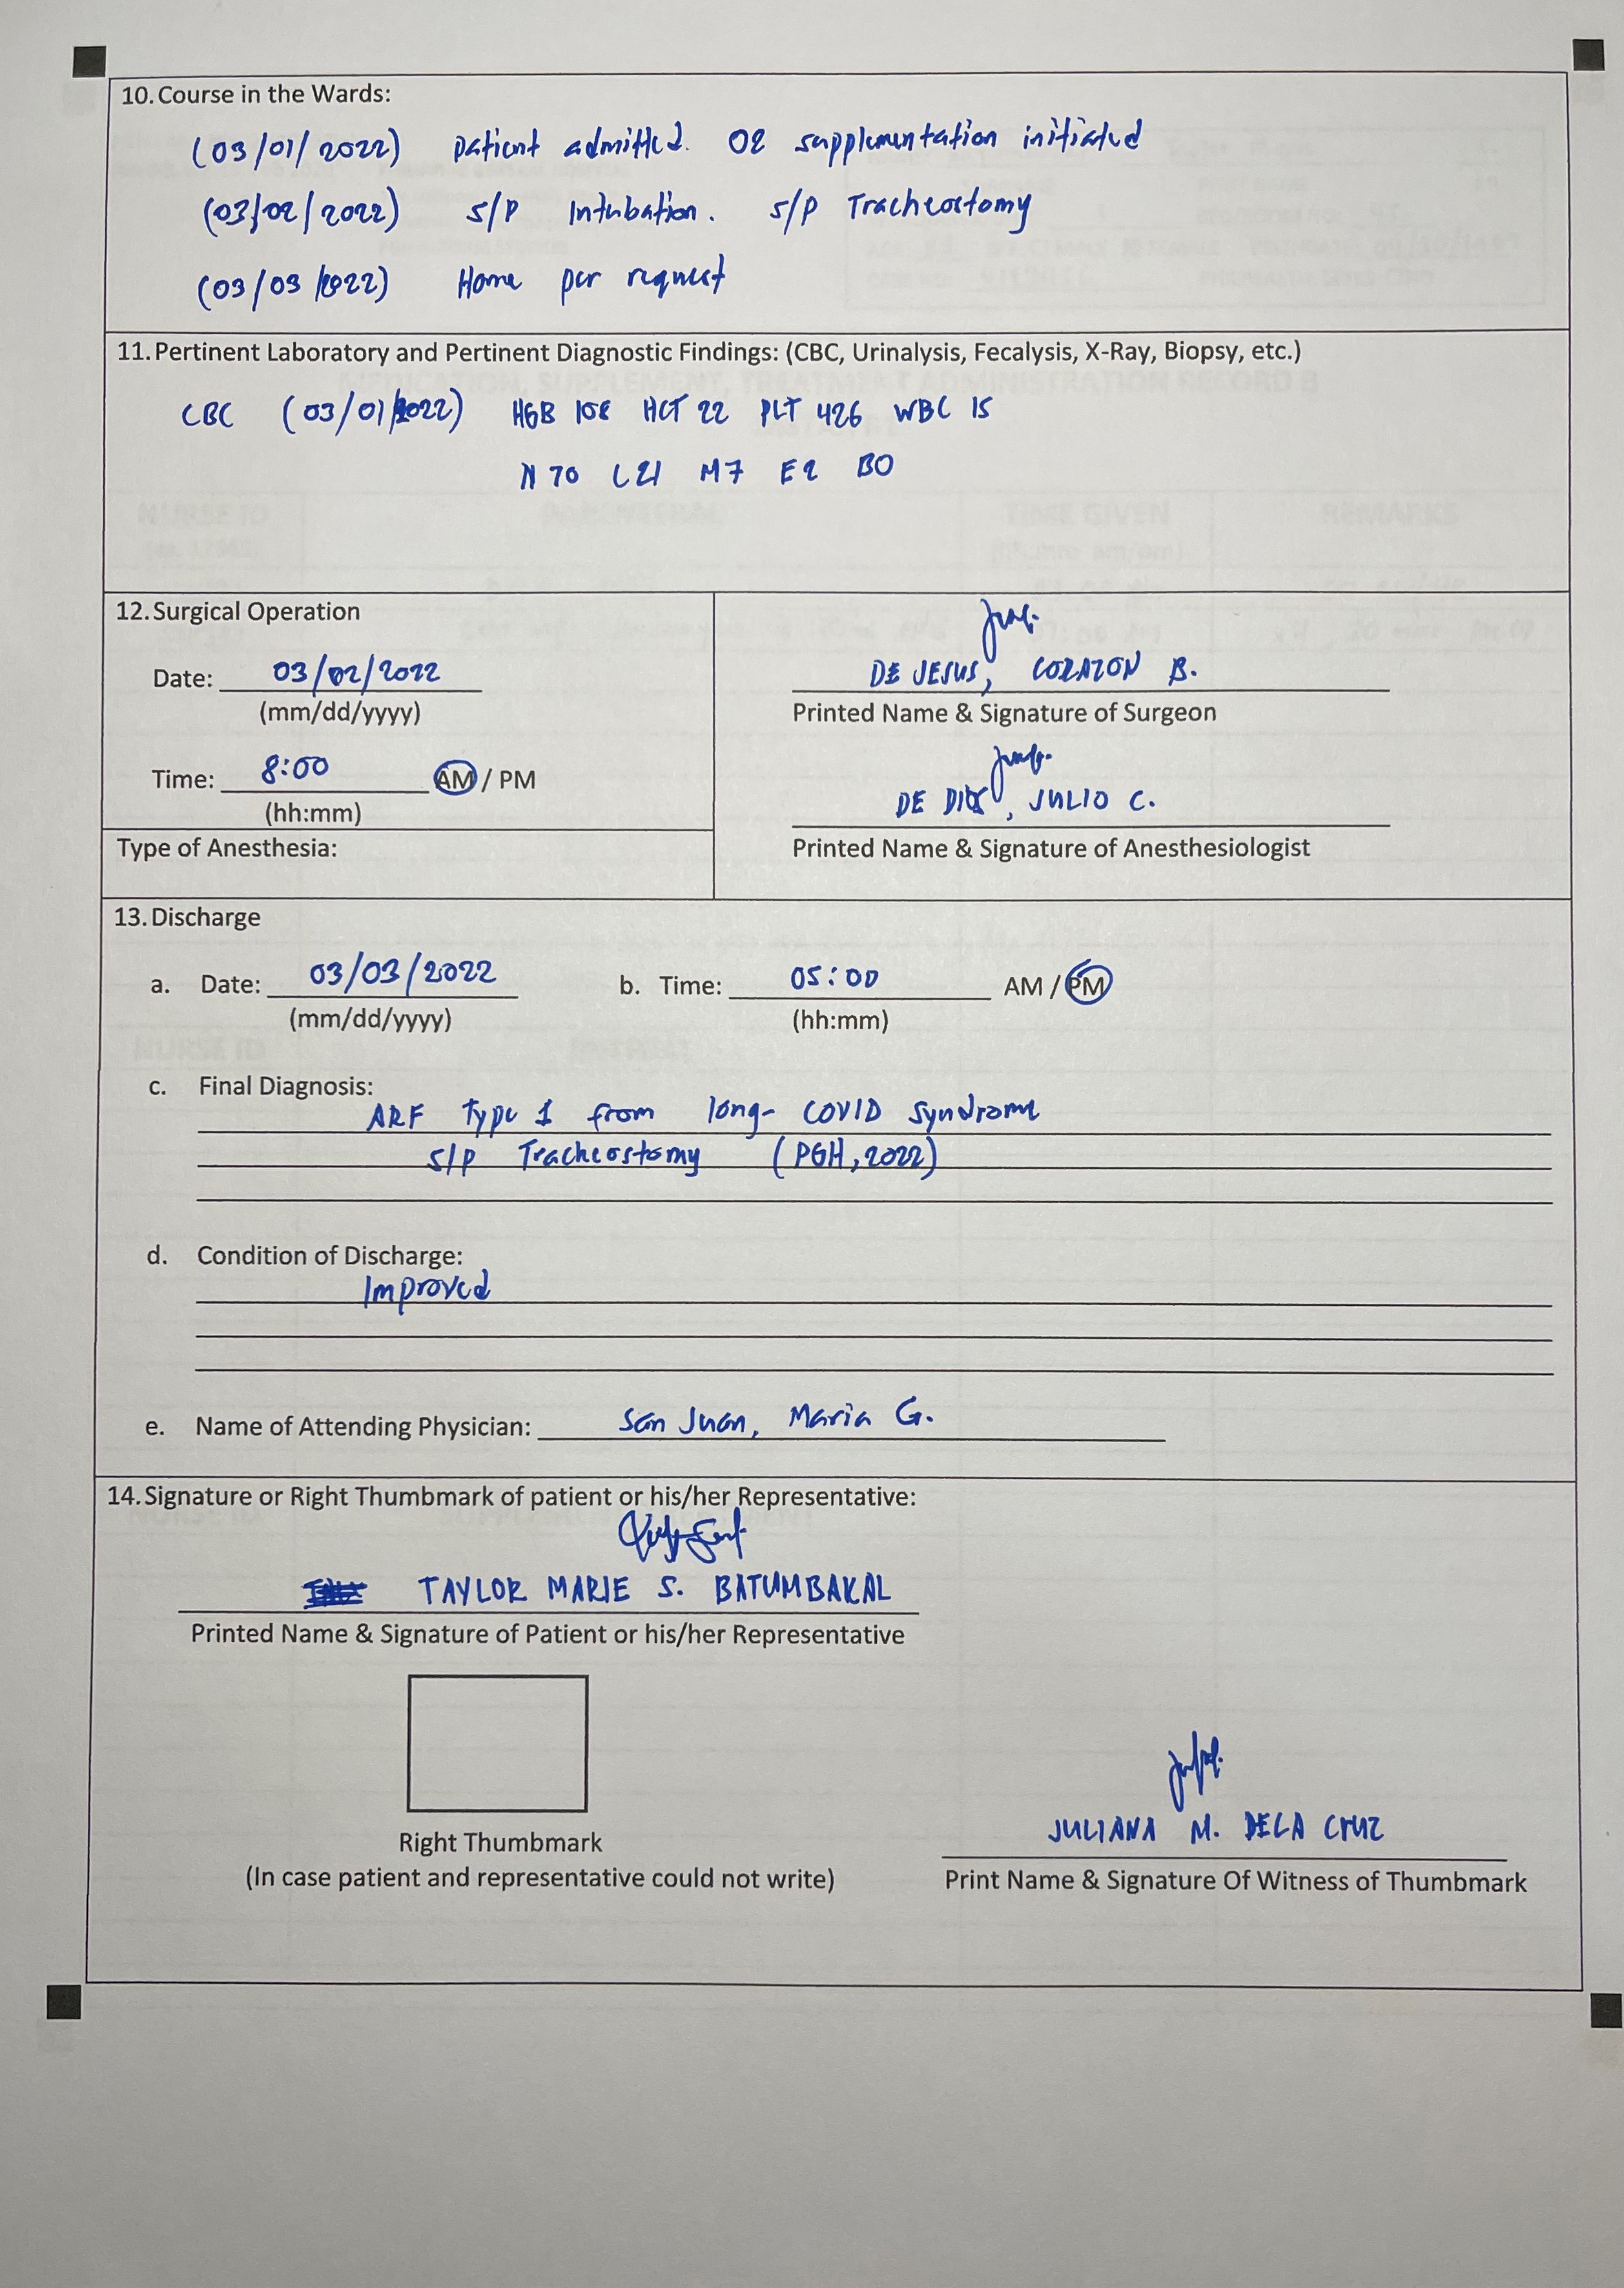 10. Course in the Wards:
(03/01/2022) patient admitted. O2 supplementation initiated
(03/02/2022) s/p Intubation. s/p Tracheostomy
(03/03/2022) Home per request
11. Pertinent Laboratory and Pertinent Diagnostic Findings: (CBC, Urinalysis, Fecalysis, X-Ray, Biopsy, etc.)
CBC (03/01/2022) HGB 108 HCT 22 PLT 426 WBC 15
N 70 L21 M7 E2 B0
12. Surgical Operation
Date: 03/02/2022
(mm/dd/yyyy)
Time: 8:00 AM / PM
(hh:mm)
Type of Anesthesia:
DE JESUS, CORAZON B.
Printed Name & Signature of Surgeon
DE DIOS, JULIO C.
Printed Name & Signature of Anesthesiologist
13. Discharge
a. Date: 03/03/2022 b. Time: 05:00 AM / PM
(mm/dd/yyyy) (hh:mm)
c. Final Diagnosis:
ARF Type 1 from long-COVID syndrome
s/p Tracheostomy (PGH, 2022)
d. Condition of Discharge:
Improved
e. Name of Attending Physician: San Juan, Maria G.
14. Signature or Right Thumbmark of patient or his/her Representative:
TAYLOR MARIE S. BATUMBAKAL
Printed Name & Signature of Patient or his/her Representative
Right Thumbmark
(In case patient and representative could not write)
JULIANA M. DELA CRUZ
Print Name & Signature Of Witness of Thumbmark